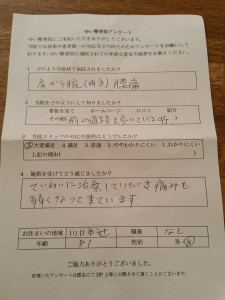 ゆい整骨院アンケート
ゆい整骨院にご来院いただきありがとうございます。
1 どのような症状で来院されましたか?
肩から腕(両方) 腰痛
2 当院をどのようにして知りましたか?
看板を見て ホームページ 口コミ 紹介
その他( 前の道路を歩いている時 )
3 当院スタッフの対応や説明はどうでしたか?
5.大変満足 4.満足 3.普通 2.ややわかりにくい 1.わかりにくい
上記の理由( )
4 施術を受けてどう感じましたか?
ていねいに治療していただき痛みも
なくなって来ています
お住まいの地域 川口市 職業 なし
年齢 81 性別 男 女
ご協力ありがとうございました。